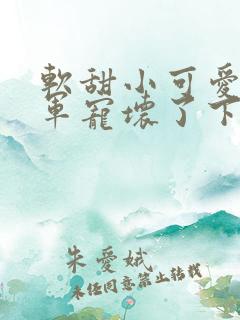 軟甜小可愛
軍寵壞了下
朱愛娥
未任同意禁止轉載